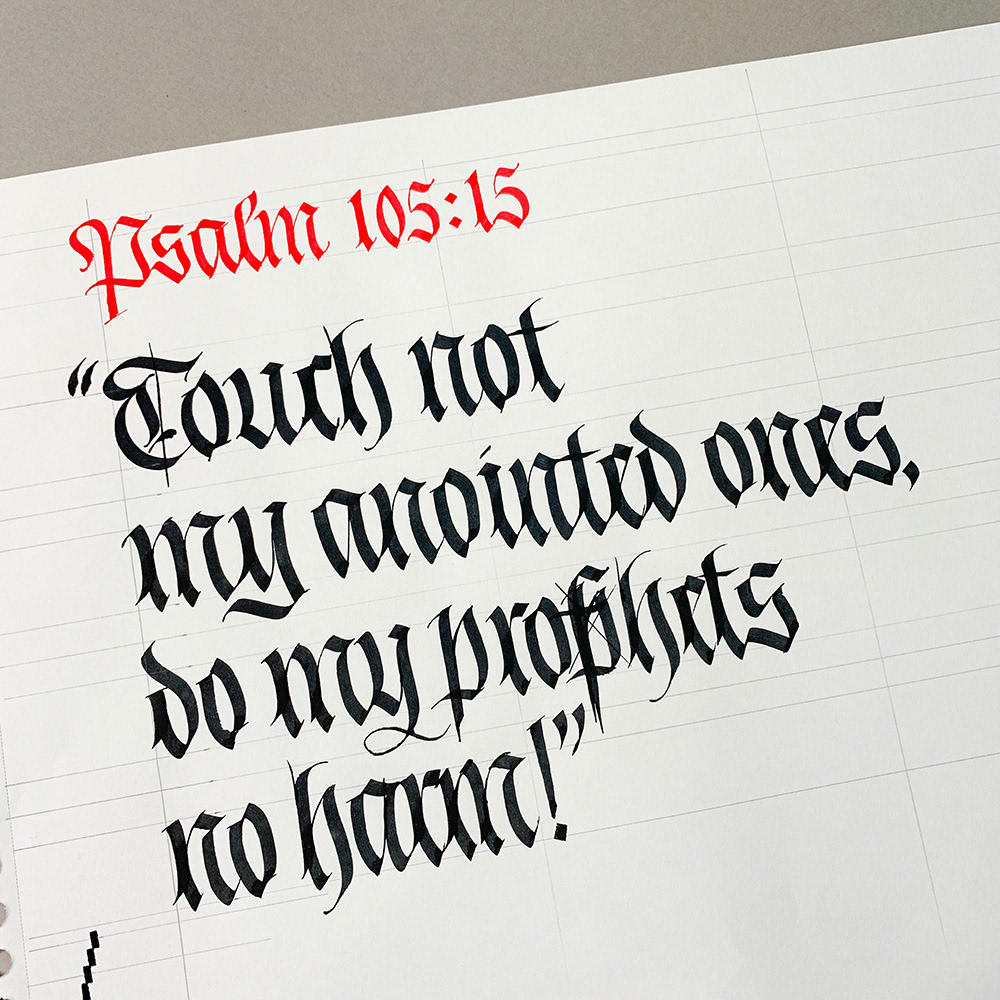 Psalm 105:15
“Touch not
my anointed ones,
do my prophets
no harm!”